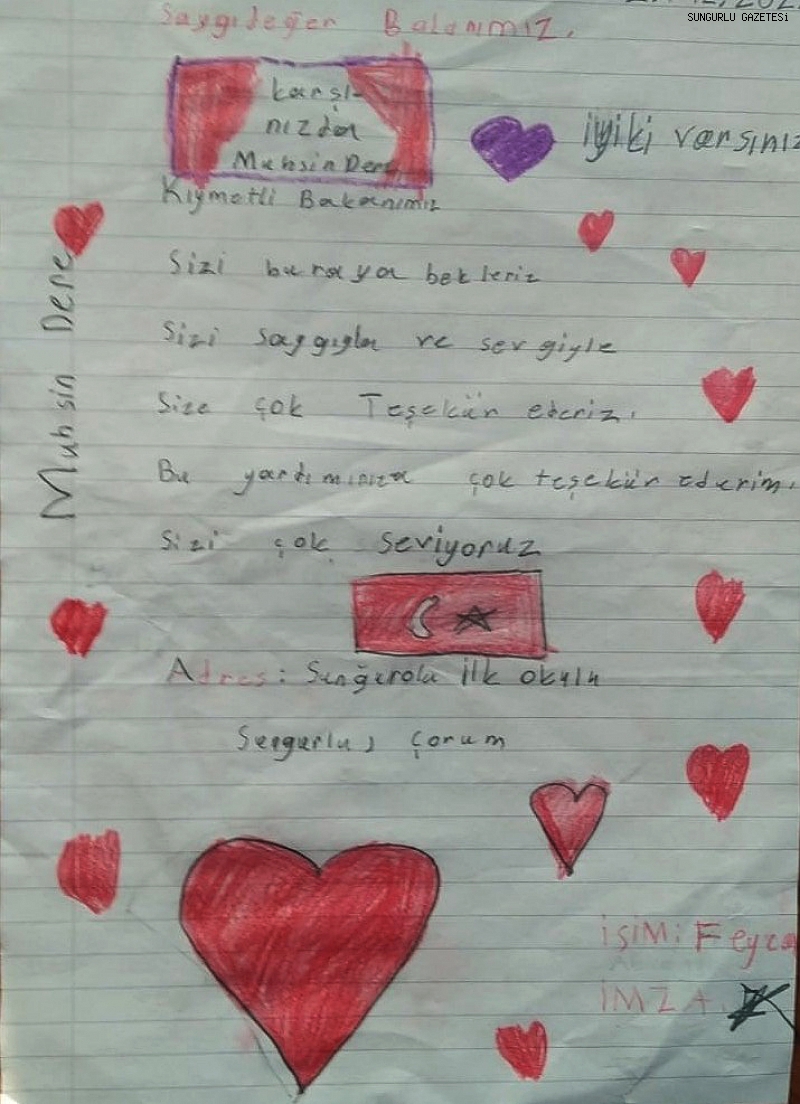 SUNGURLU GAZETESİ
Saygıdeğer Bakanımız.
karşı-
nızdan
Muhsin Dere
iyiki varsınız
Kıymetli Bakanımız
Muhsin Dere
Sizi buraya bekleriz
Sizi saygıyla ve sevgiyle
Size çok Teşekür ederiz.
Bu yardımınıza çok teşekür ederim.
Sizi çok seviyoruz
Adres: Sunğurolu ilk okulu
Sungurlu, Çorum
İSİM: Feyza
İMZA